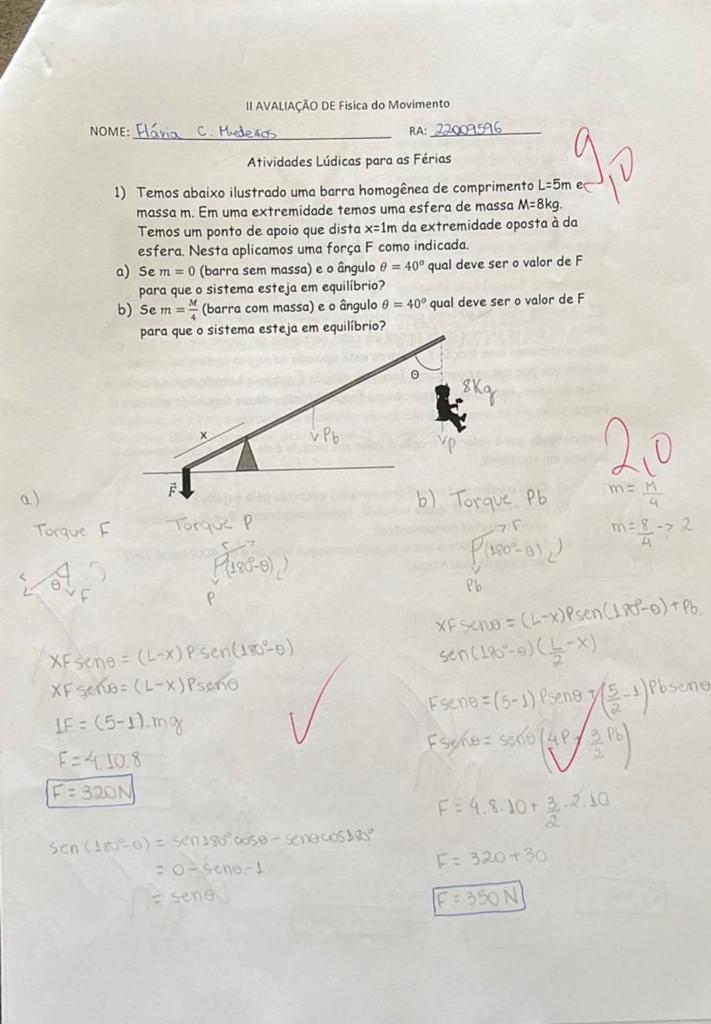 II AVALIAÇÃO DE Fisica do Movimento
NOME: Flávia C. Medeiros RA: 22009596
9,0
Atividades Lúdicas para as Férias
1) Temos abaixo ilustrado uma barra homogênea de comprimento L=5m e
massa m. Em uma extremidade temos uma esfera de massa M=8kg.
Temos um ponto de apoio que dista x=1m da extremidade oposta à da
esfera. Nesta aplicamos uma força F como indicada.
a) Se m = 0 (barra sem massa) e o ângulo θ = 40° qual deve ser o valor de F
para que o sistema esteja em equilíbrio?
b) Se m = M/4 (barra com massa) e o ângulo θ = 40° qual deve ser o valor de F
para que o sistema esteja em equilíbrio?
θ
8Kg
x
Pb
P
F
2,0
a)
Torque F
Torque P
θ
F
r
(180°-θ)
P
XFsenθ = (L-X)P sen(180°-θ)
XFsenθ = (L-X)Psenθ
1F = (5-1).mg
F = 4.10.8
F = 320N
sen(180°-θ) = sen180°cosθ - senθcos180°
= 0 - senθ.-1
= senθ
b) Torque Pb
m = M/4
m = 8/4 -> 2
r
(180°-θ)
Pb
XFsenθ = (L-X)Psen(180°-θ) + Pb.
sen(180°-θ)(L/2 - X)
Fsenθ = (5-1)Psenθ + (5/2 - 1)Pbsenθ
Fsenθ = senθ(4P + 3/2 Pb)
F = 4.8.10 + 3/2.2.10
F = 320 + 30
F = 350N